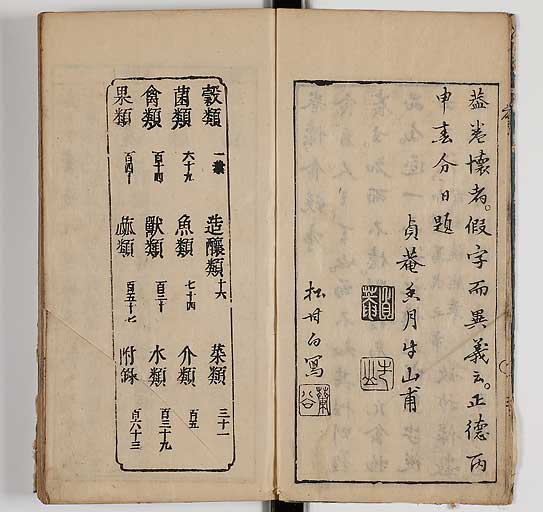 葢卷懷者。假字而異義云。正德丙
申春分日題
貞菴香月牛山甫
寫
穀類 一葉 造釀類 十六 菜類 三十一
菌類 六十九 魚類 七十四 介類 百五
禽類 百十四 獸類 百三十 水類 百三十九
果類 百四十 類 百五十七 附錄 百六十三